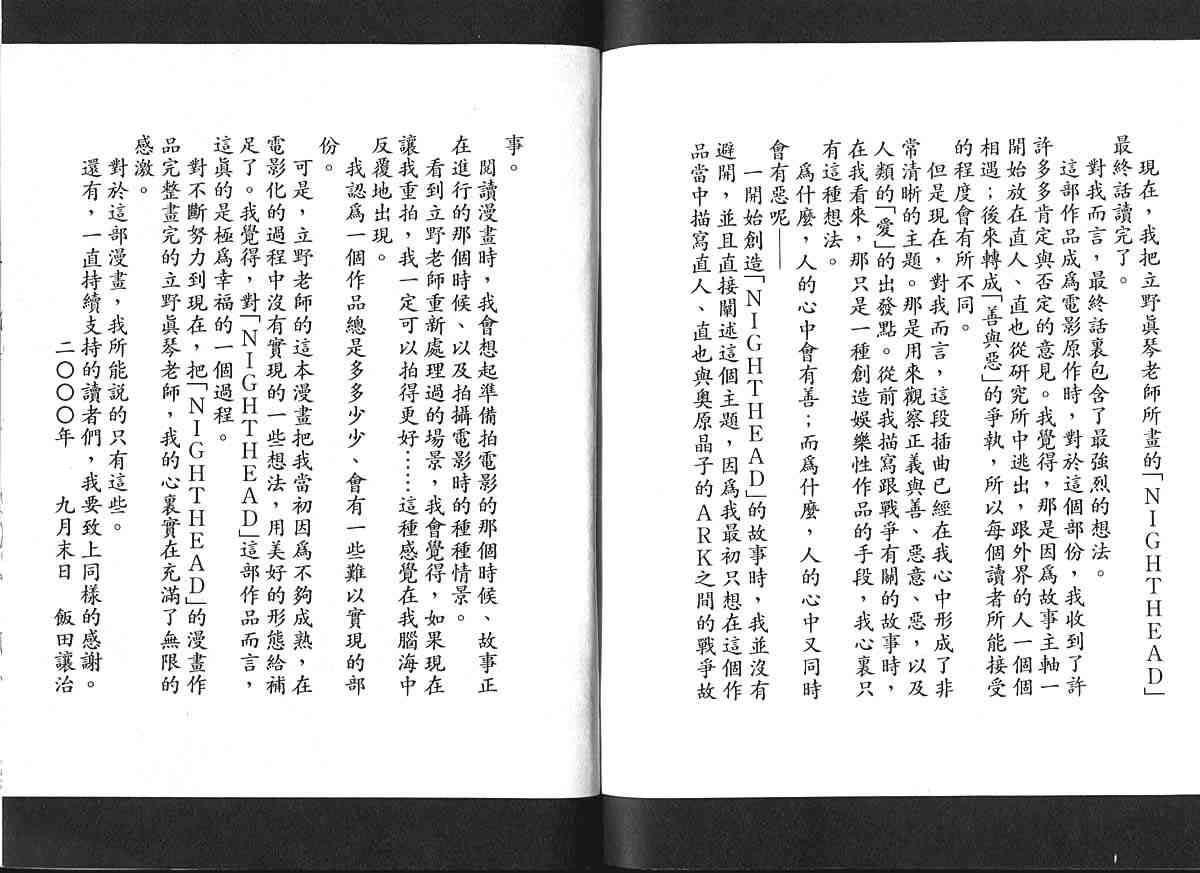 現在，我把立野眞琴老師所畫的「NIGHTHEAD」
最終話讀完了。
對我而言，最終話裏包含了最強烈的想法。
這部作品成爲電影原作時，對於這個部份，我收到了許
許多多肯定與否定的意見。我覺得，那是因爲故事主軸一
開始放在直人、直也從研究所中逃出，跟外界的人一個個
相遇；後來轉成「善與惡」的爭執，所以每個讀者所能接受
的程度會有所不同。
但是現在，對我而言，這段插曲已經在我心中形成了非
常清晰的主題。那是用來觀察正義與善、惡意、惡，以及
人類的「愛」的出發點。從前我描寫跟戰爭有關的故事時，
在我看來，那只是一種創造娛樂性作品的手段，我心裏只
有這種想法。
爲什麼，人的心中會有善；而爲什麼，人的心中又同時
會有惡呢——
一開始創造「NIGHTHEAD」的故事時，我並沒有
避開，並且直接闡述這個主題，因爲我最初只想在這個作
品當中描寫直人、直也與奧原晶子的ARK之間的戰爭故
事。
閱讀漫畫時，我會想起準備拍電影的那個時候、故事正
在進行的那個時候、以及拍攝電影時的種種情景。
看到立野老師重新處理過的場景，我會覺得，如果現在
讓我重拍，我一定可以拍得更好……這種感覺在我腦海中
反覆地出現。
我認爲一個作品總是多多少少、會有一些難以實現的部
份。
可是，立野老師的這本漫畫把我當初因爲不夠成熟，在
電影化的過程中沒有實現的一些想法，用美好的形態給補
足了。我覺得，對「NIGHTHEAD」這部作品而言，
這眞的是極爲幸福的一個過程。
對不斷努力到現在，把「NIGHTHEAD」的漫畫作
品完整畫完的立野眞琴老師，我的心裏實在充滿了無限的
感激。
對於這部漫畫，我所能說的只有這些。
還有，一直持續支持的讀者們，我要致上同樣的感謝。
二〇〇〇年　九月末日　飯田讓治